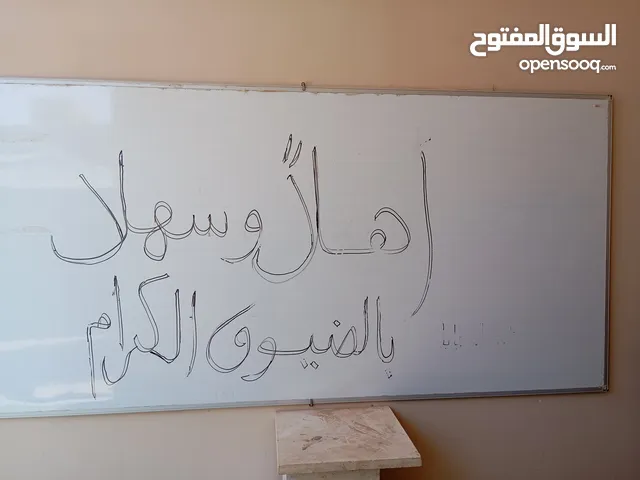 السوق المفتوح
opensooq.com
أهلاً وسهلا
بالضيوف الكرام